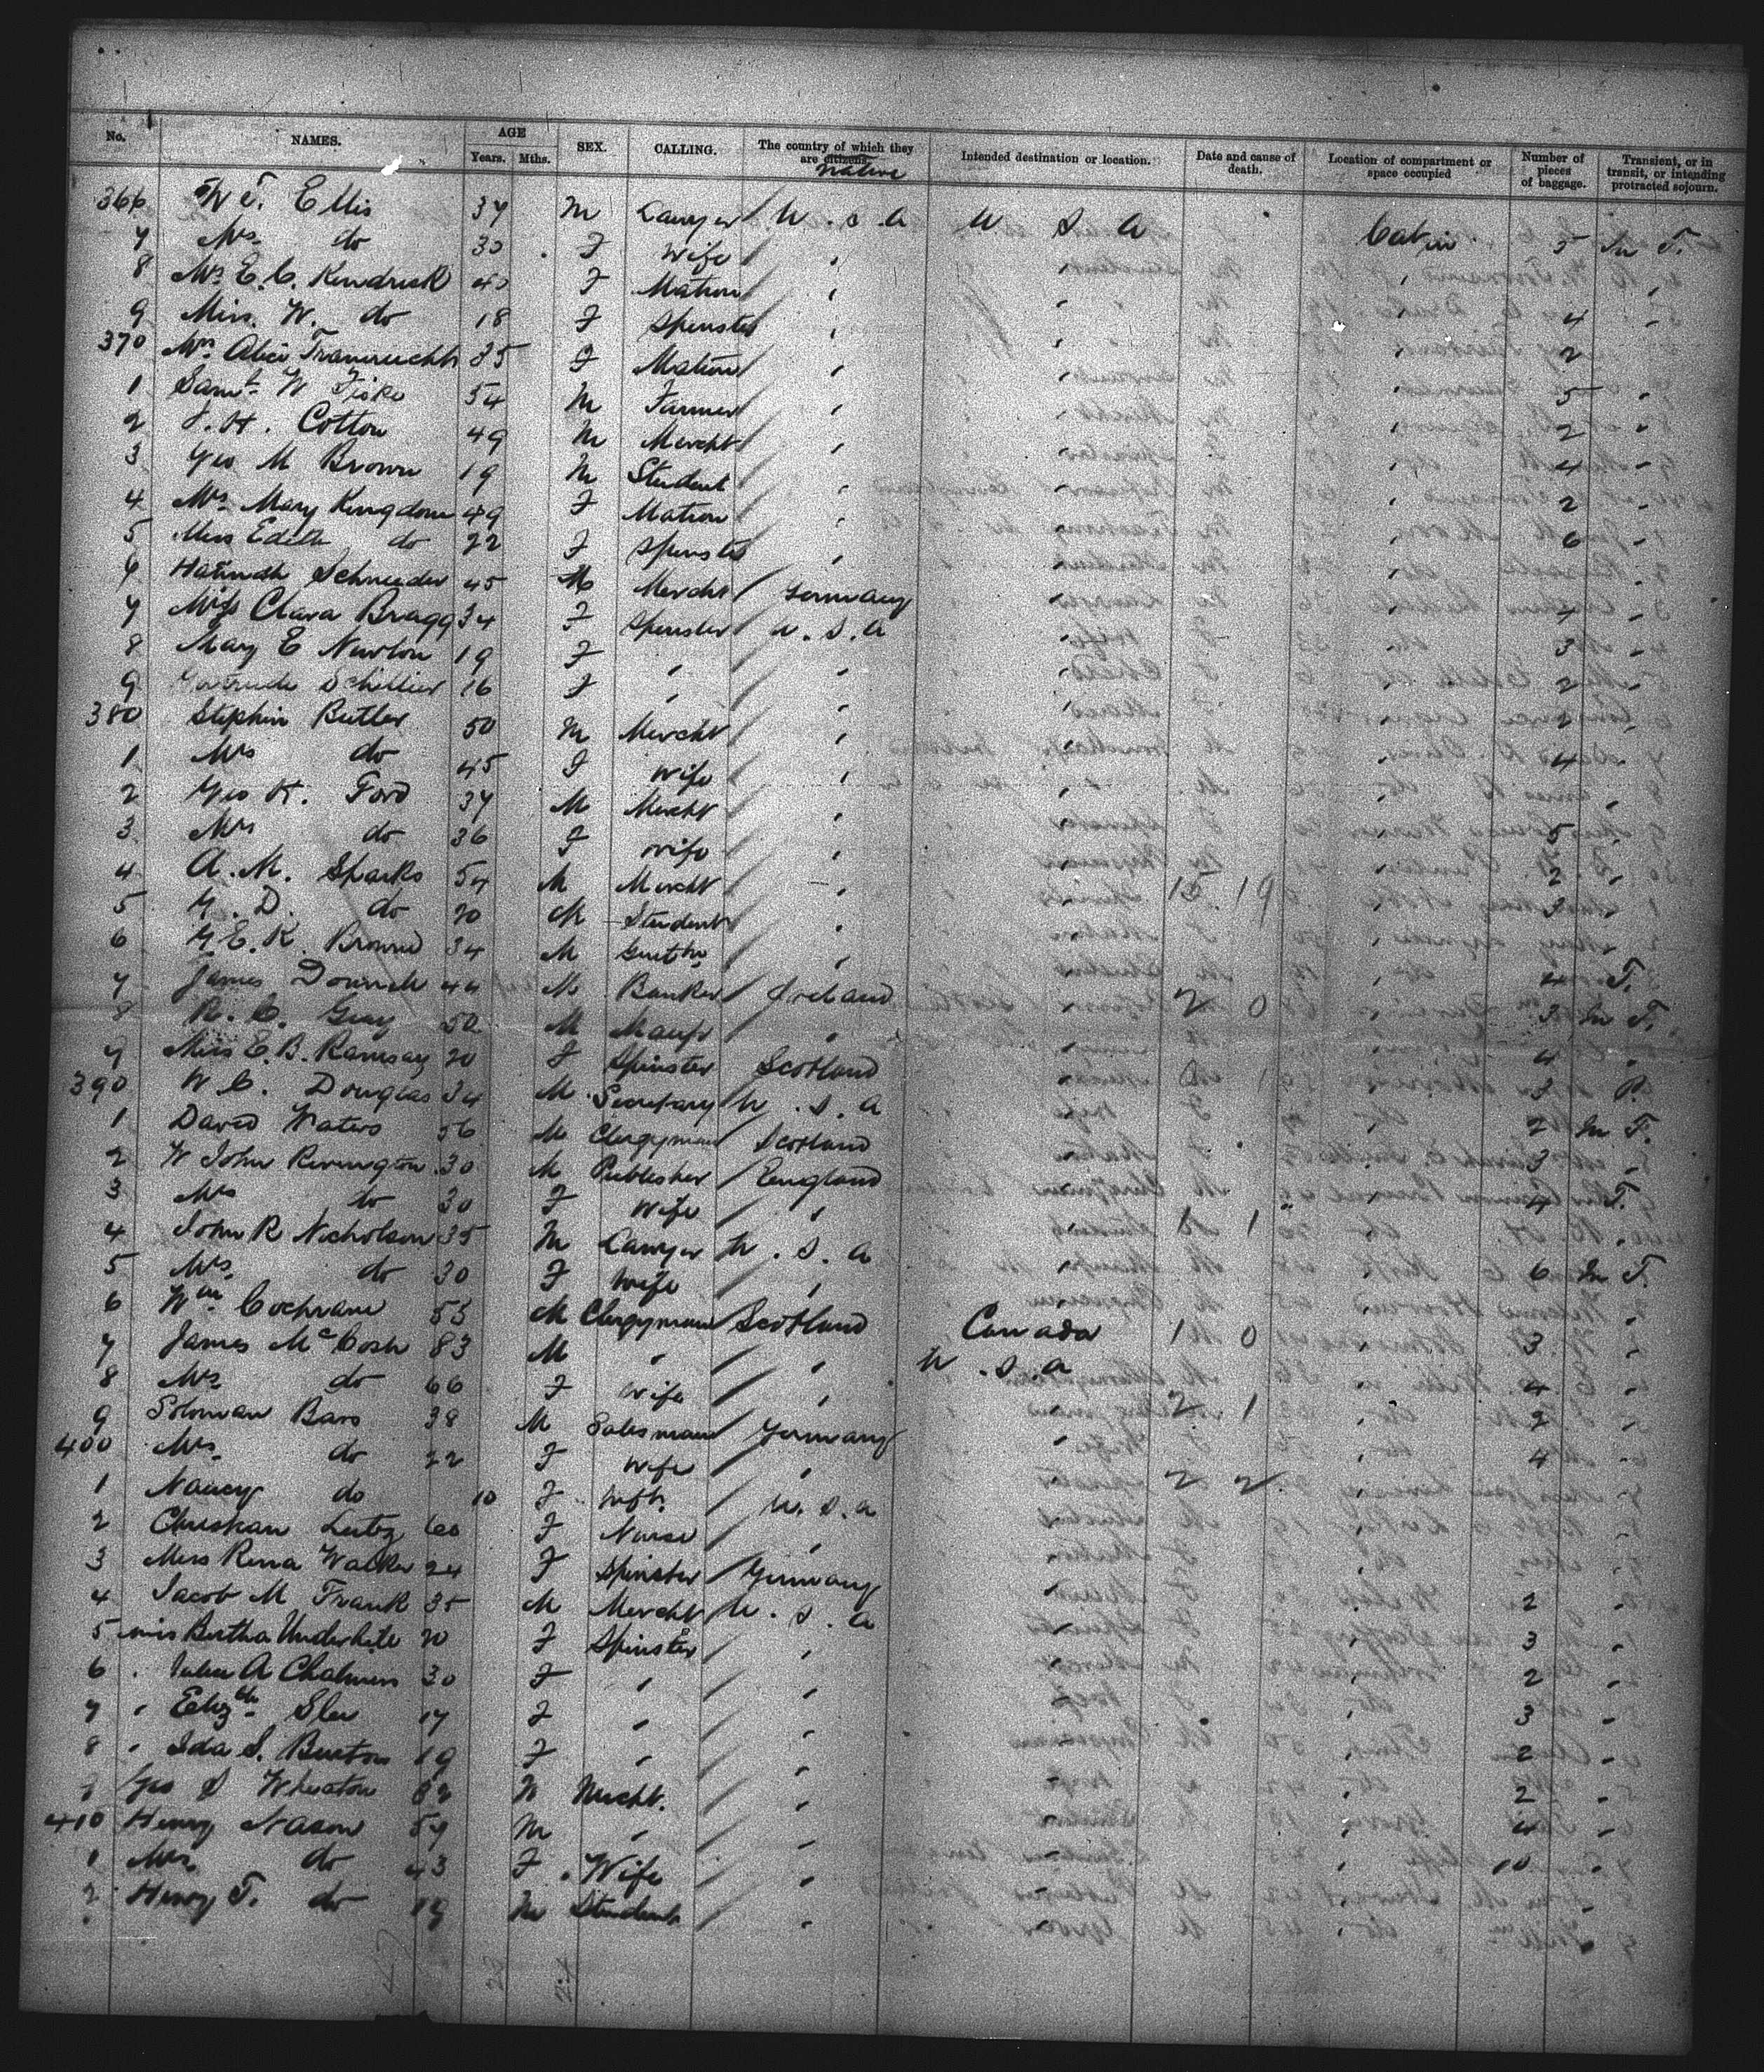 No. NAMES. AGE Years. Mths. SEX. CALLING. The country of which they are citizens. Native Intended destination or location. Date and cause of death. Location of compartment or space occupied Number of pieces of baggage. Transient, or in transit, or intending protracted sojourn.
366 W T. Ellis 37 M Lawyer U. S. A U S A Cabin 5 In T.
7 Mrs do 30 F Wife "
8 Mrs E. C. Kendrick 40 F Matron " 4 "
9 Miss. W. do 18 F Spinster " 2
370 Mrs Alice 35 F Matron " 5 "
1 Saml W Fiske 54 M Farmer " 2 "
2 J. H. Cotton 49 M Mercht " 4 "
3 Geo M Brown 19 M Student " 2 "
4 Mrs Mary Kingdom 49 F Matron " 6 "
5 Miss Edith do 22 F Spinster "
6 Hannah Schneider 45 M Mercht Germany 4 "
7 Miss Clara Bragg 34 F Spinster U. S. A 3 "
8 Mary E Newton 19 F " " 2 "
9 Gertrude Schillier 16 F " " 2
380 Stephen Butler 50 M Mercht " 4 "
1 Mrs do 45 F Wife "
2 Geo H. Ford 37 M Mercht " 5 "
3 Mrs do 36 F Wife " 2 "
4 A. M. Sparks 54 M Mercht " 15 19 3 "
5 G. D. do 20 M Student "
6 G E. K. Browne 34 M Gentm " 4 T.
7 James 44 M Banker Ireland 2 0 3 In T.
8 R. C. Gray 50 M Manfr " 4 "
9 Miss E. B. Ramsay 20 F Spinster Scotland 3 P.
390 W C. Douglas 34 M Secretary U. S. A 2 In T.
1 David Waters 56 M Clergyman Scotland 3 "
2 W John Rivington 30 M Publisher England 4 T.
3 Mrs do 30 F Wife " 1
4 John R Nicholson 35 M Lawyer U. S. A 6 In T.
5 Mrs. do 30 F Wife "
6 Wm Cochrane 55 M Clergyman Scotland Canada 1 0 3 "
7 James McCosh 83 M " " U. S. A 4 "
8 Mrs do 66 F Wife " 2 1 2 "
9 Soloman Bars 38 M Salesman Germany 4 "
400 Mrs. do 22 F Wife " 2 2
1 Nancy do 10 F Infth. U. S. A
2 Christian Lutz 60 F Nurse "
3 Miss Rena Walker 24 F Spinster Germany 2 "
4 Jacob M Frank 35 M Mercht U. S. A 3 "
5 Miss Bertha Underhile 20 F Spinster " 2 "
6 " Julia A Chalmers 30 F " " 3 "
7 " Elizbth Slee 17 F " " 2 "
8 " Ida S. Burton 19 F " " 2 "
9 Geo S Wheaton M Mercht. " 4 "
410 Henry Nason 57 M " " 10 "
1 Mrs. do 43 F Wife "
2 Henry T. do 19 M Student "